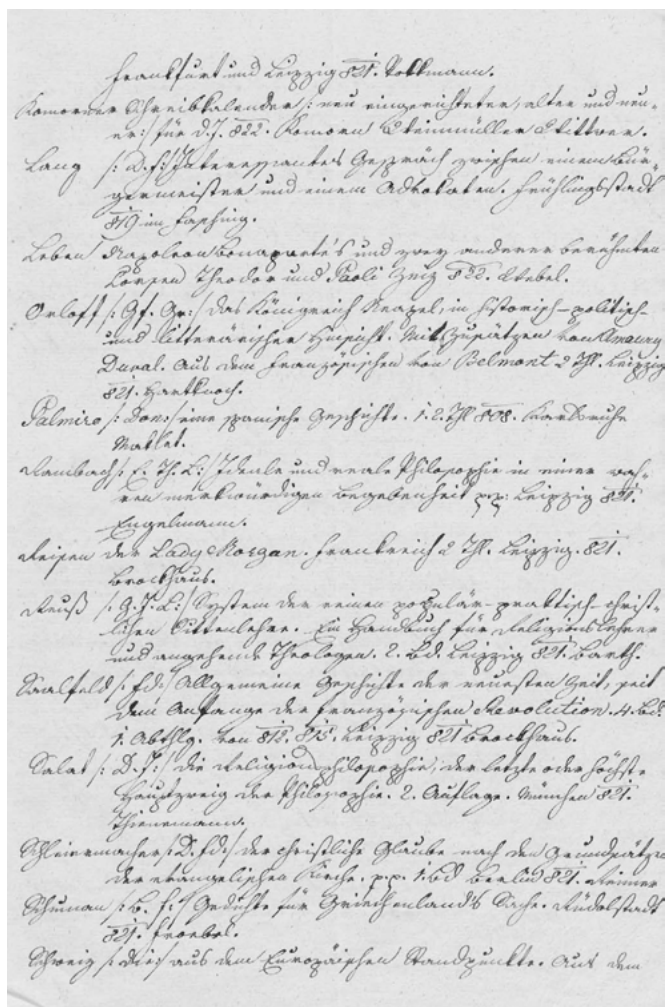 Frankfurt und Leipzig 821. Volkmann.
Komorner Schreibkalender /: neu eingerichteter, alter und neu-
er :/ für d. J. 822. Komorn Steinmüller Sittwe.
Lang /: D. J :/ Interessantes Gespräch zwischen einem Bür-
germeister und einem Advokaten. Frühlingsstadt
819 im Fasching.
Leben Napoleon Bonaparte's und zwey anderer berühmten
Corsen Theodor und Paoli 822.
Orloff /: Gf. Gr :/ das Königreich Neapel, in historisch-politisch-
und litterärischer Hinsicht. Mit Zusätzen von Amaury
Duval. Aus dem Französischen von Belmont 2 Thl. Leipzig
821. Hartknoch.
Palmiro /: Don :/ eine spanische Geschichte. 1. 2. Thl 808. Karlsruhe
Maklot.
Rambach /: F. Th. L :/ Ideale und reale Philosophie in einer wah-
ren merkwürdigen Begebenheit p.p. Leipzig 821.
Engelmann.
Reisen der Lady Morgan. Frankreich 2 Thl. Leipzig. 821.
Brockhaus.
Reuß /: G. J. L :/ System der reinen populär-praktisch-christ-
lichen Sittenlehre. Ein Handbuch für Religionslehrer
und angehende Theologen. 2. Bd. Leipzig 821. Barth.
Saalfeld /: Fd :/ Allgemeine Geschichte der neuesten Zeit, seit
dem Anfange der französischen Revolution. 4. Bd
1. Abthlg. von 812. 815. Leipzig 821 Brockhaus.
Salat /: D. J :/ die Religionsphilosophie, der letzte oder höchste
Hauptzweig der Philosophie. 2. Auflage. München 821.
Thienemann.
Schleiermacher /: D. Fd :/ der christliche Glaube nach den Grundsätzen
der evangelischen Kirche. p.p. 1. Bd Berlin 821. Reimer
Schuman /: B. F :/ Gedichte für Griechenland's Sache. Rudolstadt
821. Froebel.
Schweiz /: die :/ aus dem Europäischen Standpunkte. Aus dem